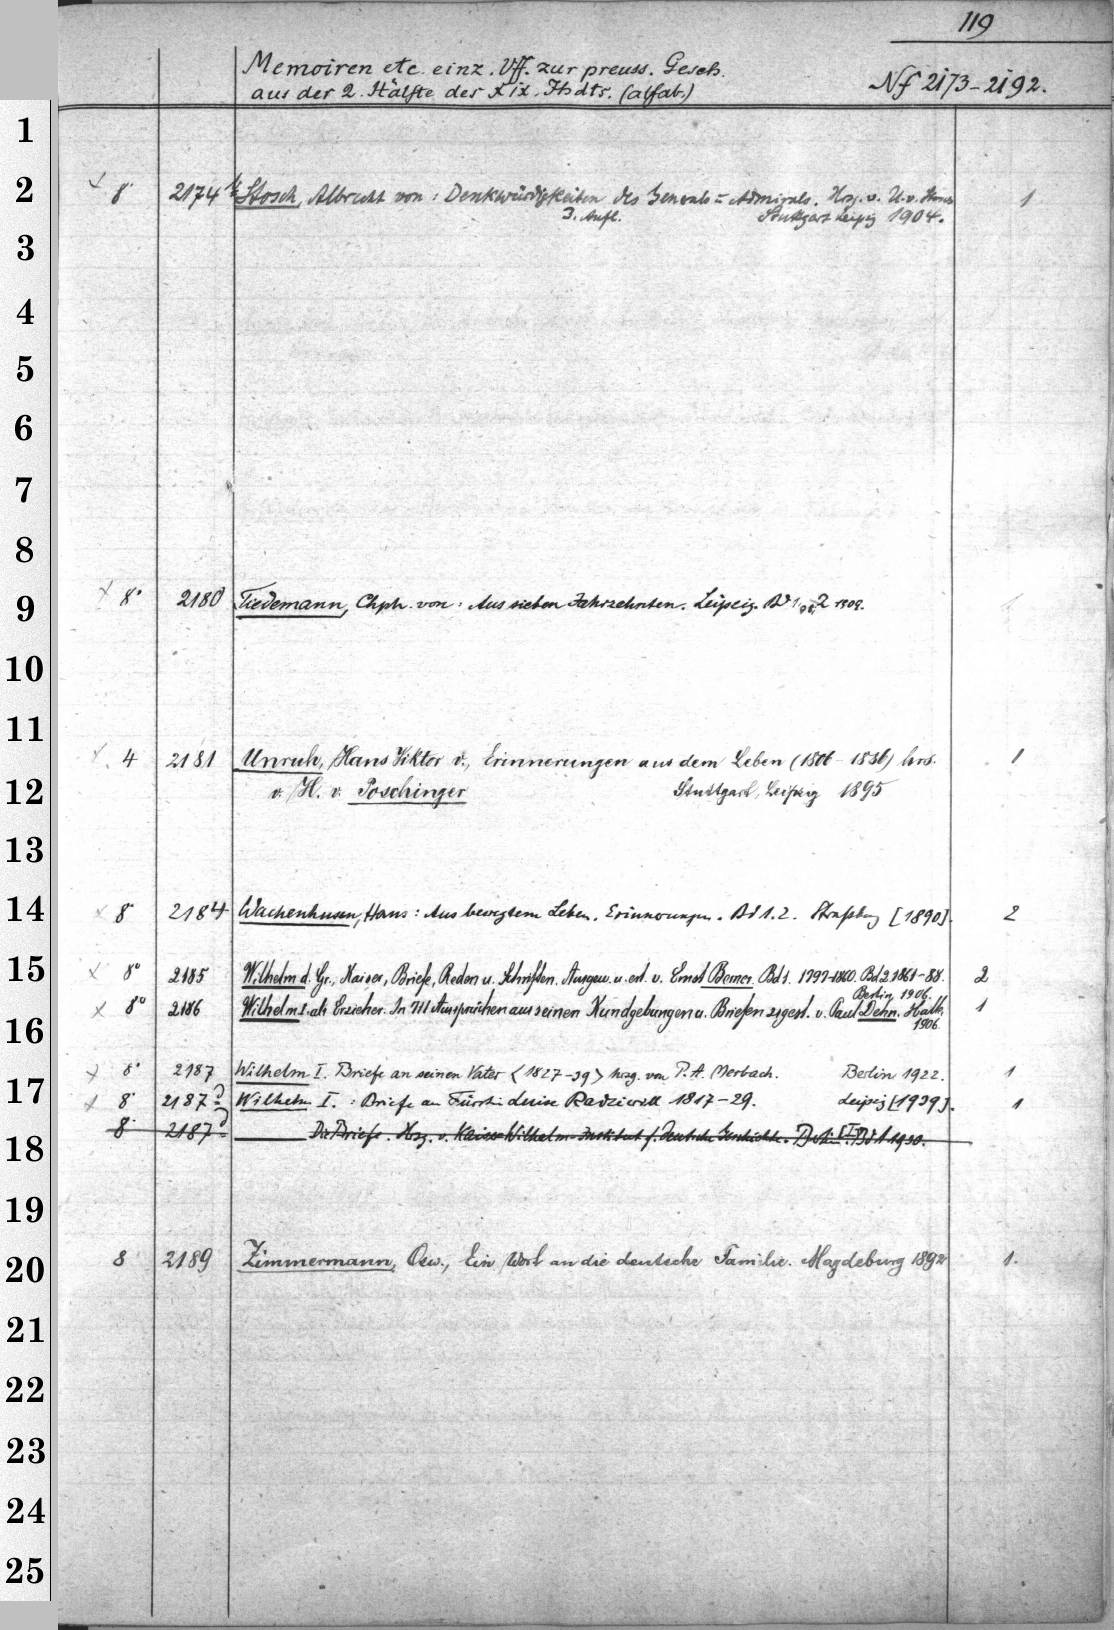 119
Memoiren etc. einz. Vff. zur preuss. Gesch.
aus der 2. Hälfte des XIX. Jhdts. (alfab.)
Nf 2173-2192.
1
2 8° 2174 Stosch, Albrecht von: Denkwürdigkeiten des Generals u. Admirals. Hrsg. v. U. v. Stosch 1
3. Aufl. Stuttgart Leipzig 1904.
3
4
5
6
7
8
9 8° 2180 Tiedemann, Chph. von: Aus sieben Jahrzehnten. Leipzig. Bd 1. 2 1909.
10
11
4 2181 Unruh, Hans Viktor v., Erinnerungen aus dem Leben (1806-1886) hrs. 1
12 v. H. v. Poschinger Stuttgart, Leipzig 1895
13
14 8° 2184 Wachenhusen, Hans: Aus bewegtem Leben. Erinnerungen. Bd 1.2. Straßburg [1890]. 2
15 8° 2185 Wilhelm d. Gr., Kaiser, Briefe, Reden u. Schriften. Ausgew. u. erl. v. Ernst Berner. Bd 1. 1797-1860. Bd 2 1861-88. 2
Berlin 1906.
16 8° 2186 Wilhelm I. als Erzieher. In 711 Aussprüchen aus seinen Kundgebungen u. Briefen zsgest. v. Paul Dehn. Halle, 1
1906.
8° 2187 Wilhelm I. Briefe an seinen Vater <1827-39> hrsg. von P. A. Merbach. Berlin 1922. 1
17 8° 2187 Wilhelm I.: Briefe an Fürstin Luise Radziwill 1817-29. Leipzig [1939]. 1
18 8° 2187 Die Briefe. Hrsg. v. Kaiser-Wilhelm-Institut f. Deutsche Geschichte. Berlin. Bd 1 1930.
19
20 8 2189 Zimmermann, Osw., Ein Wort an die deutsche Familie. Magdeburg 1892 1.
21
22
23
24
25